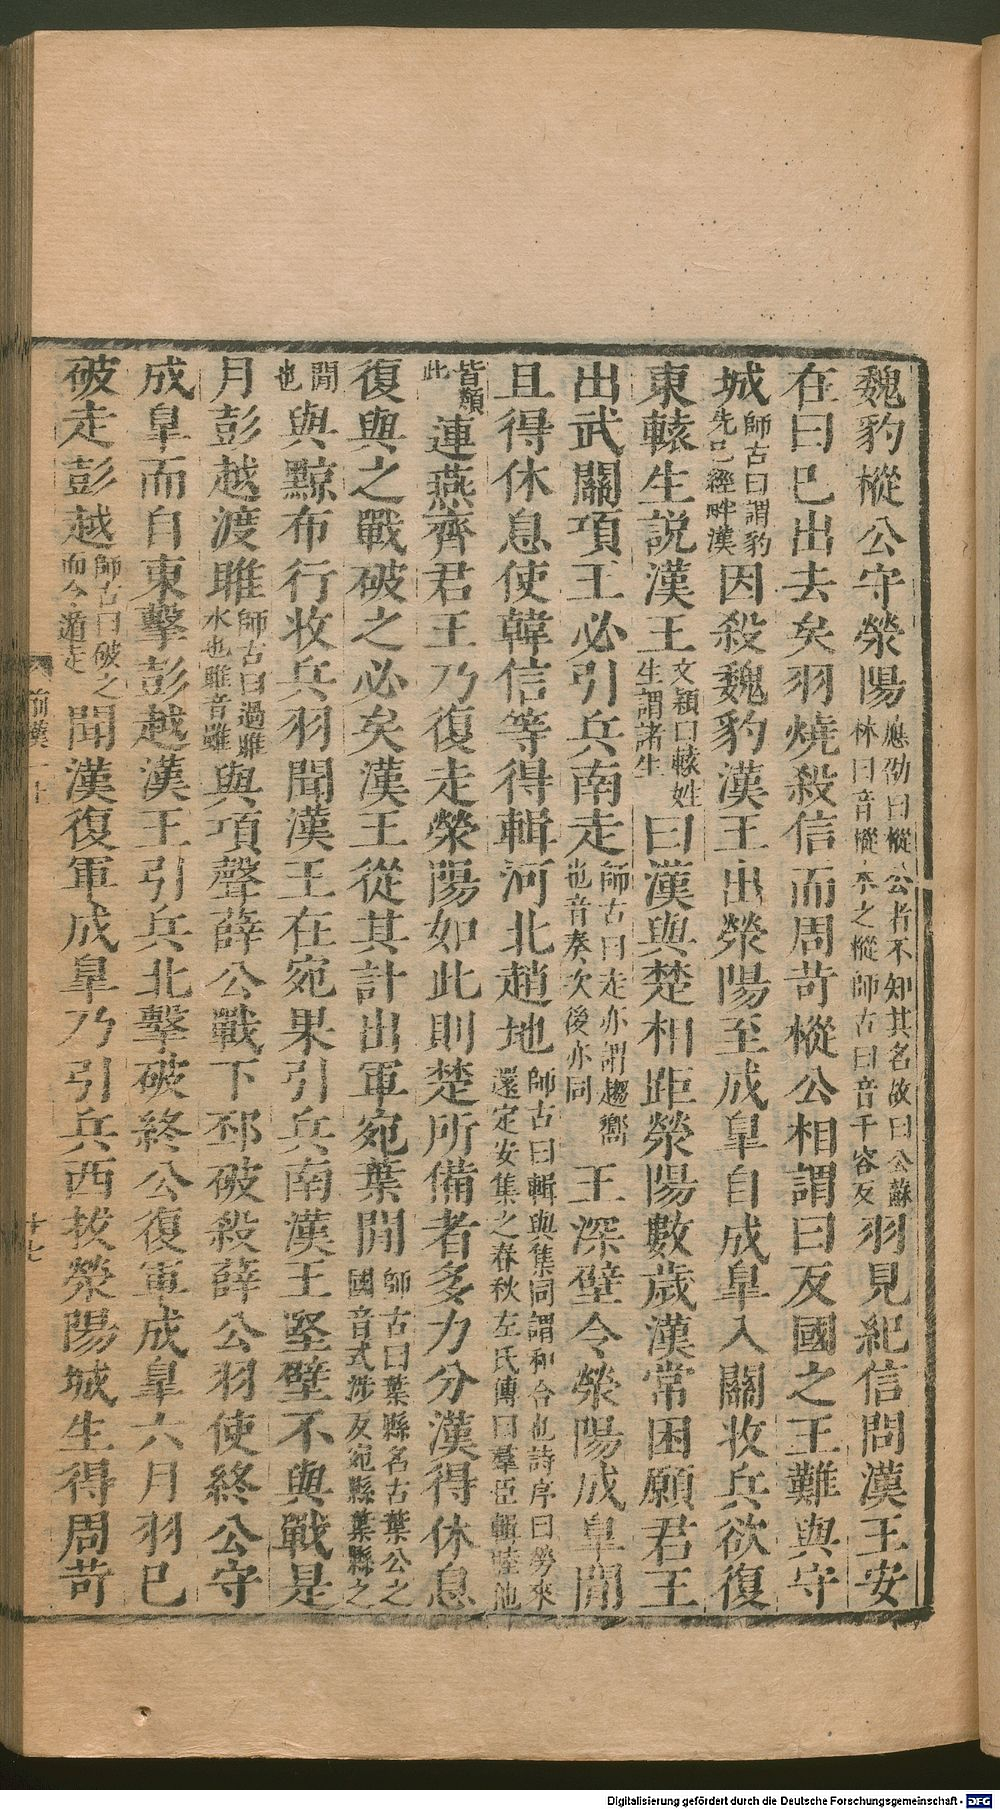 魏豹樅公守滎陽應劭曰樅公者不知其名故曰公蘇林曰音樅木之樅師古曰音千容反羽見紀信問漢王安
在曰已出去矣羽燒殺信而周苛樅公相謂曰反國之王難與守
城師古曰謂豹先已經畔漢因殺魏豹漢王出滎陽至成皐自成皐入關收兵欲復
東轅生說漢王文穎曰轅姓生謂諸生曰漢與楚相距滎陽數歲漢常困願君王
出武關項王必引兵南走師古曰走亦謂趨嚮也音奏次後亦同王深壁令滎陽成皐閒
且得休息使韓信等得輯河北趙地師古曰輯與集同謂和合也詩序曰勞來還定安集之春秋左氏傳曰羣臣輯睦他
皆類此連燕齊君王乃復走滎陽如此則楚所備者多力分漢得休息
復與之戰破之必矣漢王從其計出軍宛葉閒師古曰葉縣名古葉公之國音式涉反宛縣葉縣之
閒也與黥布行收兵羽聞漢王在宛果引兵南漢王堅壁不與戰是
月彭越渡睢師古曰過睢水也睢音雖與項聲薛公戰下邳破殺薛公羽使終公守
成皐而自東擊彭越漢王引兵北擊破終公復軍成皐六月羽已
破走彭越師古曰破之而令遁走聞漢復軍成皐乃引兵西拔滎陽城生得周苛
前漢一上
十七
Digitalisierung gefördert durch die Deutsche Forschungsgemeinschaft - DFG